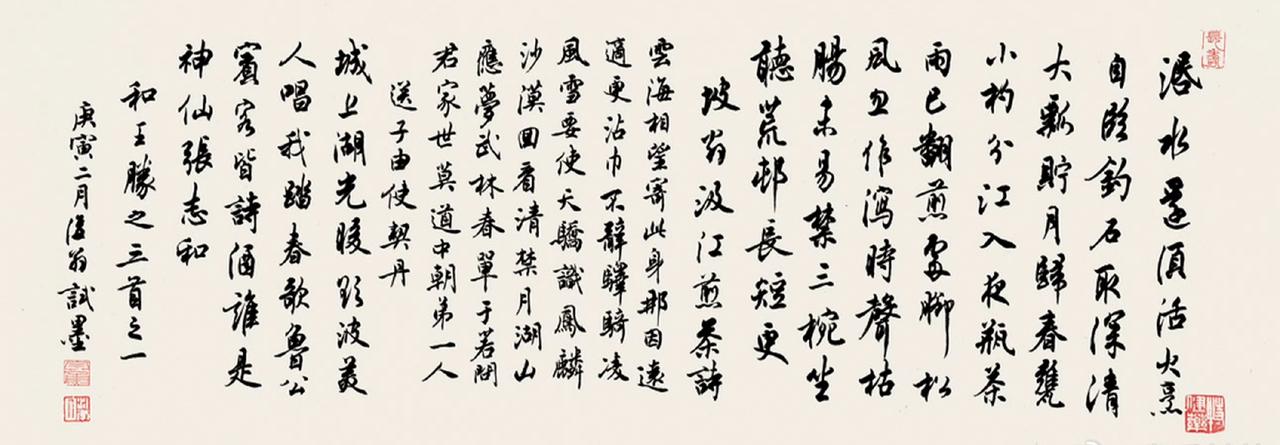 活水還須活火烹
自臨釣石取深清
大瓢貯月歸春甕
小杓分江入夜瓶茶
雨已翻煎處腳松
風忽作瀉時聲枯
腸未易禁三椀坐
聽荒邨長短更
坡翁汲江煎茶詩
雲海相望寄此身那因遠
適更沾巾不辭驛騎凌
風雪要使天驕識鳳麟
沙漠回看清禁月湖山
應夢武林春單于若問
君家世莫道中朝第一人
送子由使契丹
城上湖光暖欲波美
人唱我踏春歌魯公
賓客皆詩酒誰是
神仙張志和
和王勝之三首之一
庚寅二月翁試墨